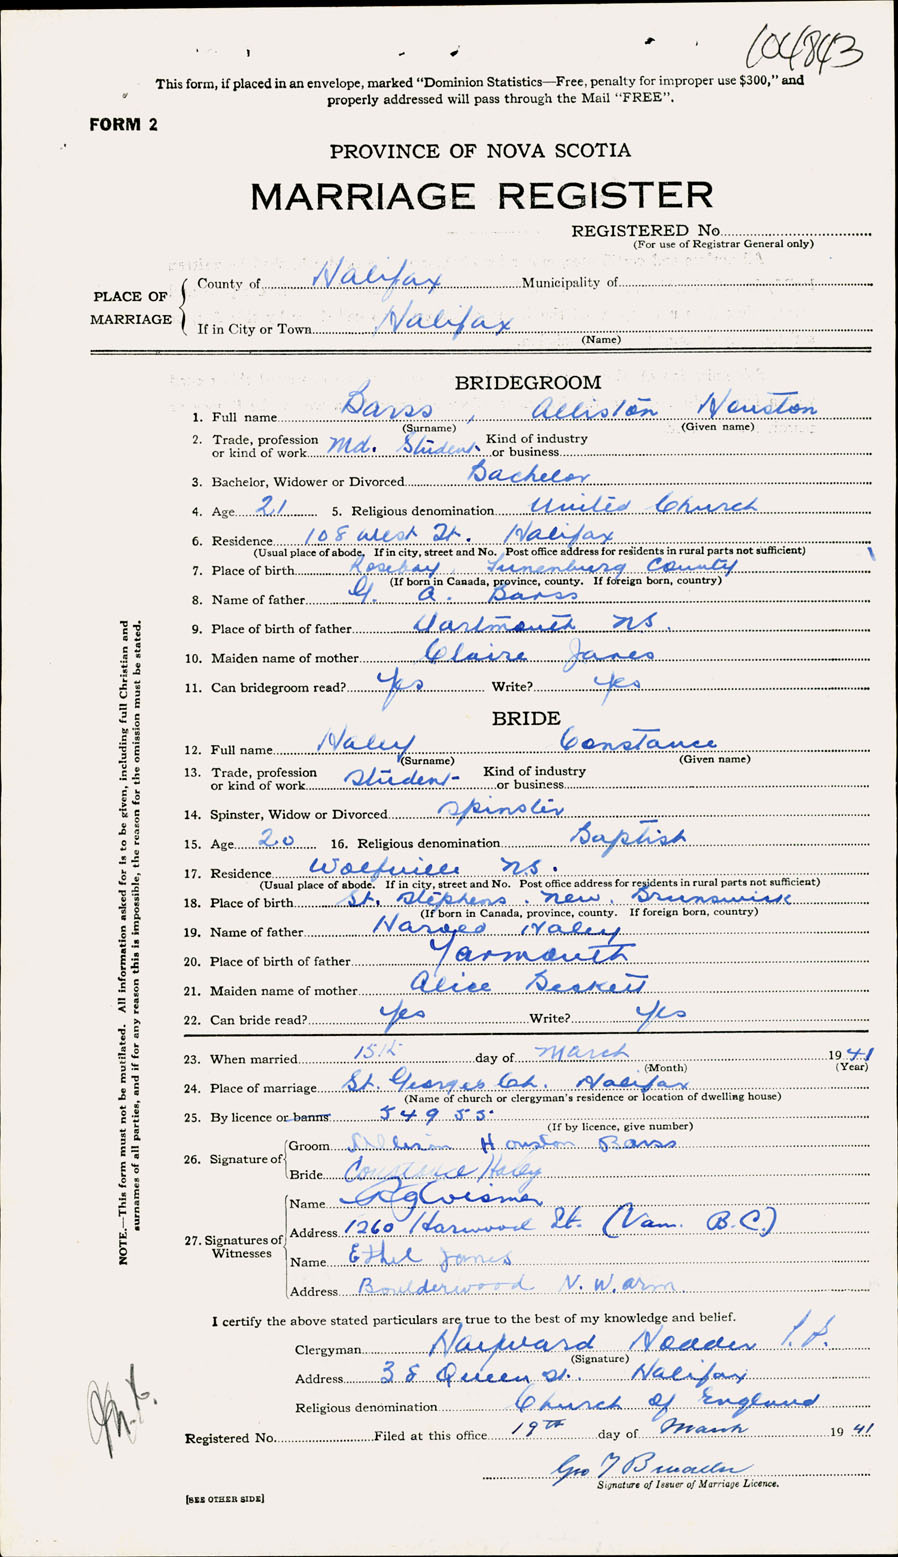 104843
This form, if placed in an envelope, marked "Dominion Statistics—Free, penalty for improper use $300," and
properly addressed will pass through the Mail "FREE".
FORM 2
PROVINCE OF NOVA SCOTIA
MARRIAGE REGISTER
REGISTERED No
(For use of Registrar General only)
PLACE OF MARRIAGE
County of Halifax Municipality of
If in City or Town Halifax
(Name)
BRIDEGROOM
1. Full name Barss, Alliston Houston
(Surname) (Given name)
2. Trade, profession or kind of work Md. Student Kind of industry or business
3. Bachelor, Widower or Divorced Bachelor
4. Age 21 5. Religious denomination United Church
6. Residence 108 West St. Halifax
(Usual place of abode. If in city, street and No. Post office address for residents in rural parts not sufficient)
7. Place of birth Rosebay, Lunenburg County
(If born in Canada, province, county. If foreign born, country)
8. Name of father G. A. Barss
9. Place of birth of father Dartmouth NS.
10. Maiden name of mother Claire Janes
11. Can bridegroom read? Yes Write? Yes
BRIDE
12. Full name Haley Constance
(Surname) (Given name)
13. Trade, profession or kind of work Student Kind of industry or business
14. Spinster, Widow or Divorced Spinster
15. Age 20 16. Religious denomination Baptist
17. Residence Wolfville NS.
(Usual place of abode. If in city, street and No. Post office address for residents in rural parts not sufficient)
18. Place of birth St. Stephens. New. Brunswick
(If born in Canada, province, county. If foreign born, country)
19. Name of father Harold Haley
20. Place of birth of father Yarmouth
21. Maiden name of mother Alice
22. Can bride read? Yes Write? Yes
23. When married 15th day of March 1941
(Month) (Year)
24. Place of marriage St. Georges Ch. Halifax
(Name of church or clergyman's residence or location of dwelling house)
25. By licence or banns 54955
(If by licence, give number)
26. Signature of
Groom Houston Barss
Bride Constance Haley
27. Signatures of Witnesses
Name
Address 1260 Harwood St. (Van. B.C.)
Name Ethel Janes
Address Boulderwood N.W. arm
I certify the above stated particulars are true to the best of my knowledge and belief.
Clergyman Hayward
(Signature)
Address 38 Queen St. Halifax
Religious denomination Church of England
Registered No. Filed at this office 19th day of March 1941
Geo T
Signature of Issuer of Marriage Licence.
[SEE OTHER SIDE]
NOTE.—This form must not be mutilated. All information asked for is to be given, including full Christian and
surnames of all parties, and if for any reason this is impossible, the reason for the omission must be stated.